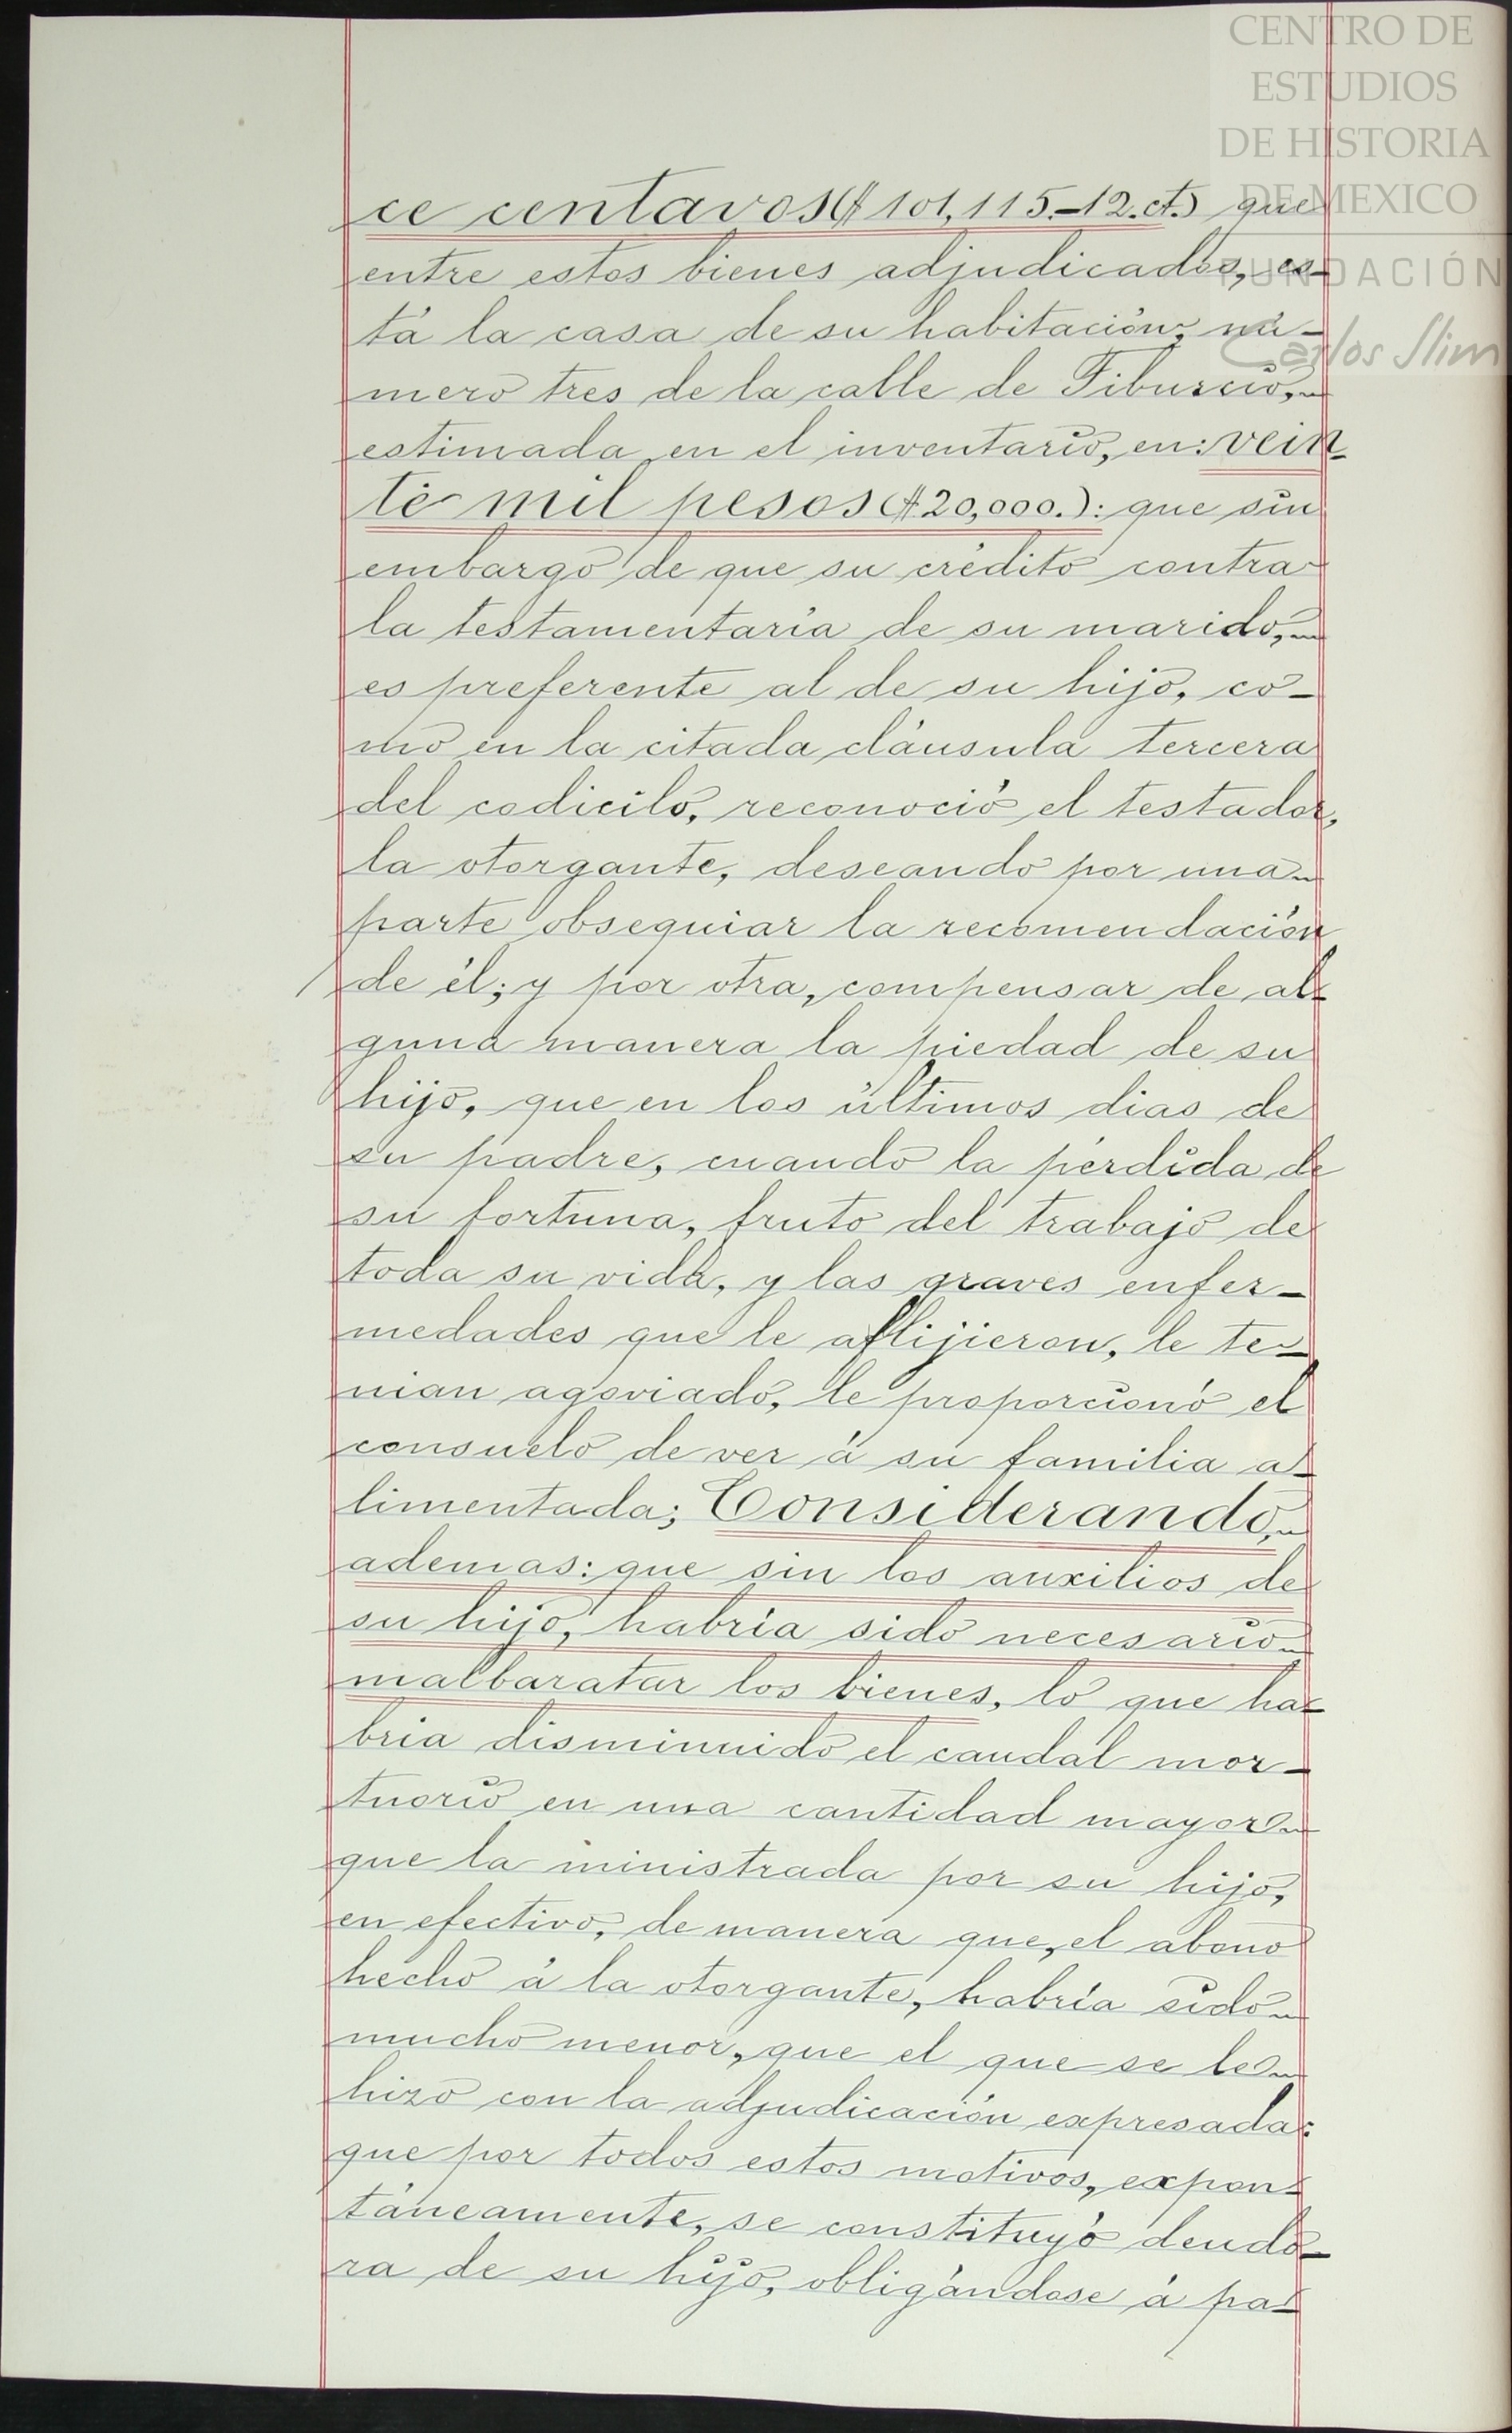 CENTRO DE
ESTUDIOS
DE HISTORIA
DE MEXICO
FUNDACIÓN
Carlos Slim
ce centavos ($101,115.-12.ct.) que
entre estos bienes adjudicados, es-
tá la casa de su habitación, nú-
mero tres de la calle de Tiburcio,
estimada en el inventario, en: vein-
te mil pesos ($20,000.): que sin
embargo de que su crédito contra
la testamentaría de su marido,
es preferente al de su hijo, co-
mo en la citada cláusula tercera
del codicilo, reconoció el testador,
la otorgante, deseando por una
parte obsequiar la recomendación
de él; y por otra, compensar de al-
guna manera la piedad de su
hijo, que en los últimos dias de
su padre, cuando la pérdida de
su fortuna, fruto del trabajo de
toda su vida, y las graves enfer-
medades que le aflijieron, le te-
nian agoviado, le proporcionó el
consuelo de ver á su familia a-
limentada; Considerando,
ademas: que sin los auxilios de
su hijo, habría sido necesario
malbaratar los bienes, lo que ha-
bria disminuido el caudal mor-
tuorio en una cantidad mayor
que la ministrada por su hijo,
en efectivo, de manera que, el abono
hecho á la otorgante, habría sido
mucho menor, que el que se le
hizo con la adjudicación expresada:
que por todos estos motivos, expon-
táneamente, se constituyó deudo-
ra de su hijo, obligándose á pa-